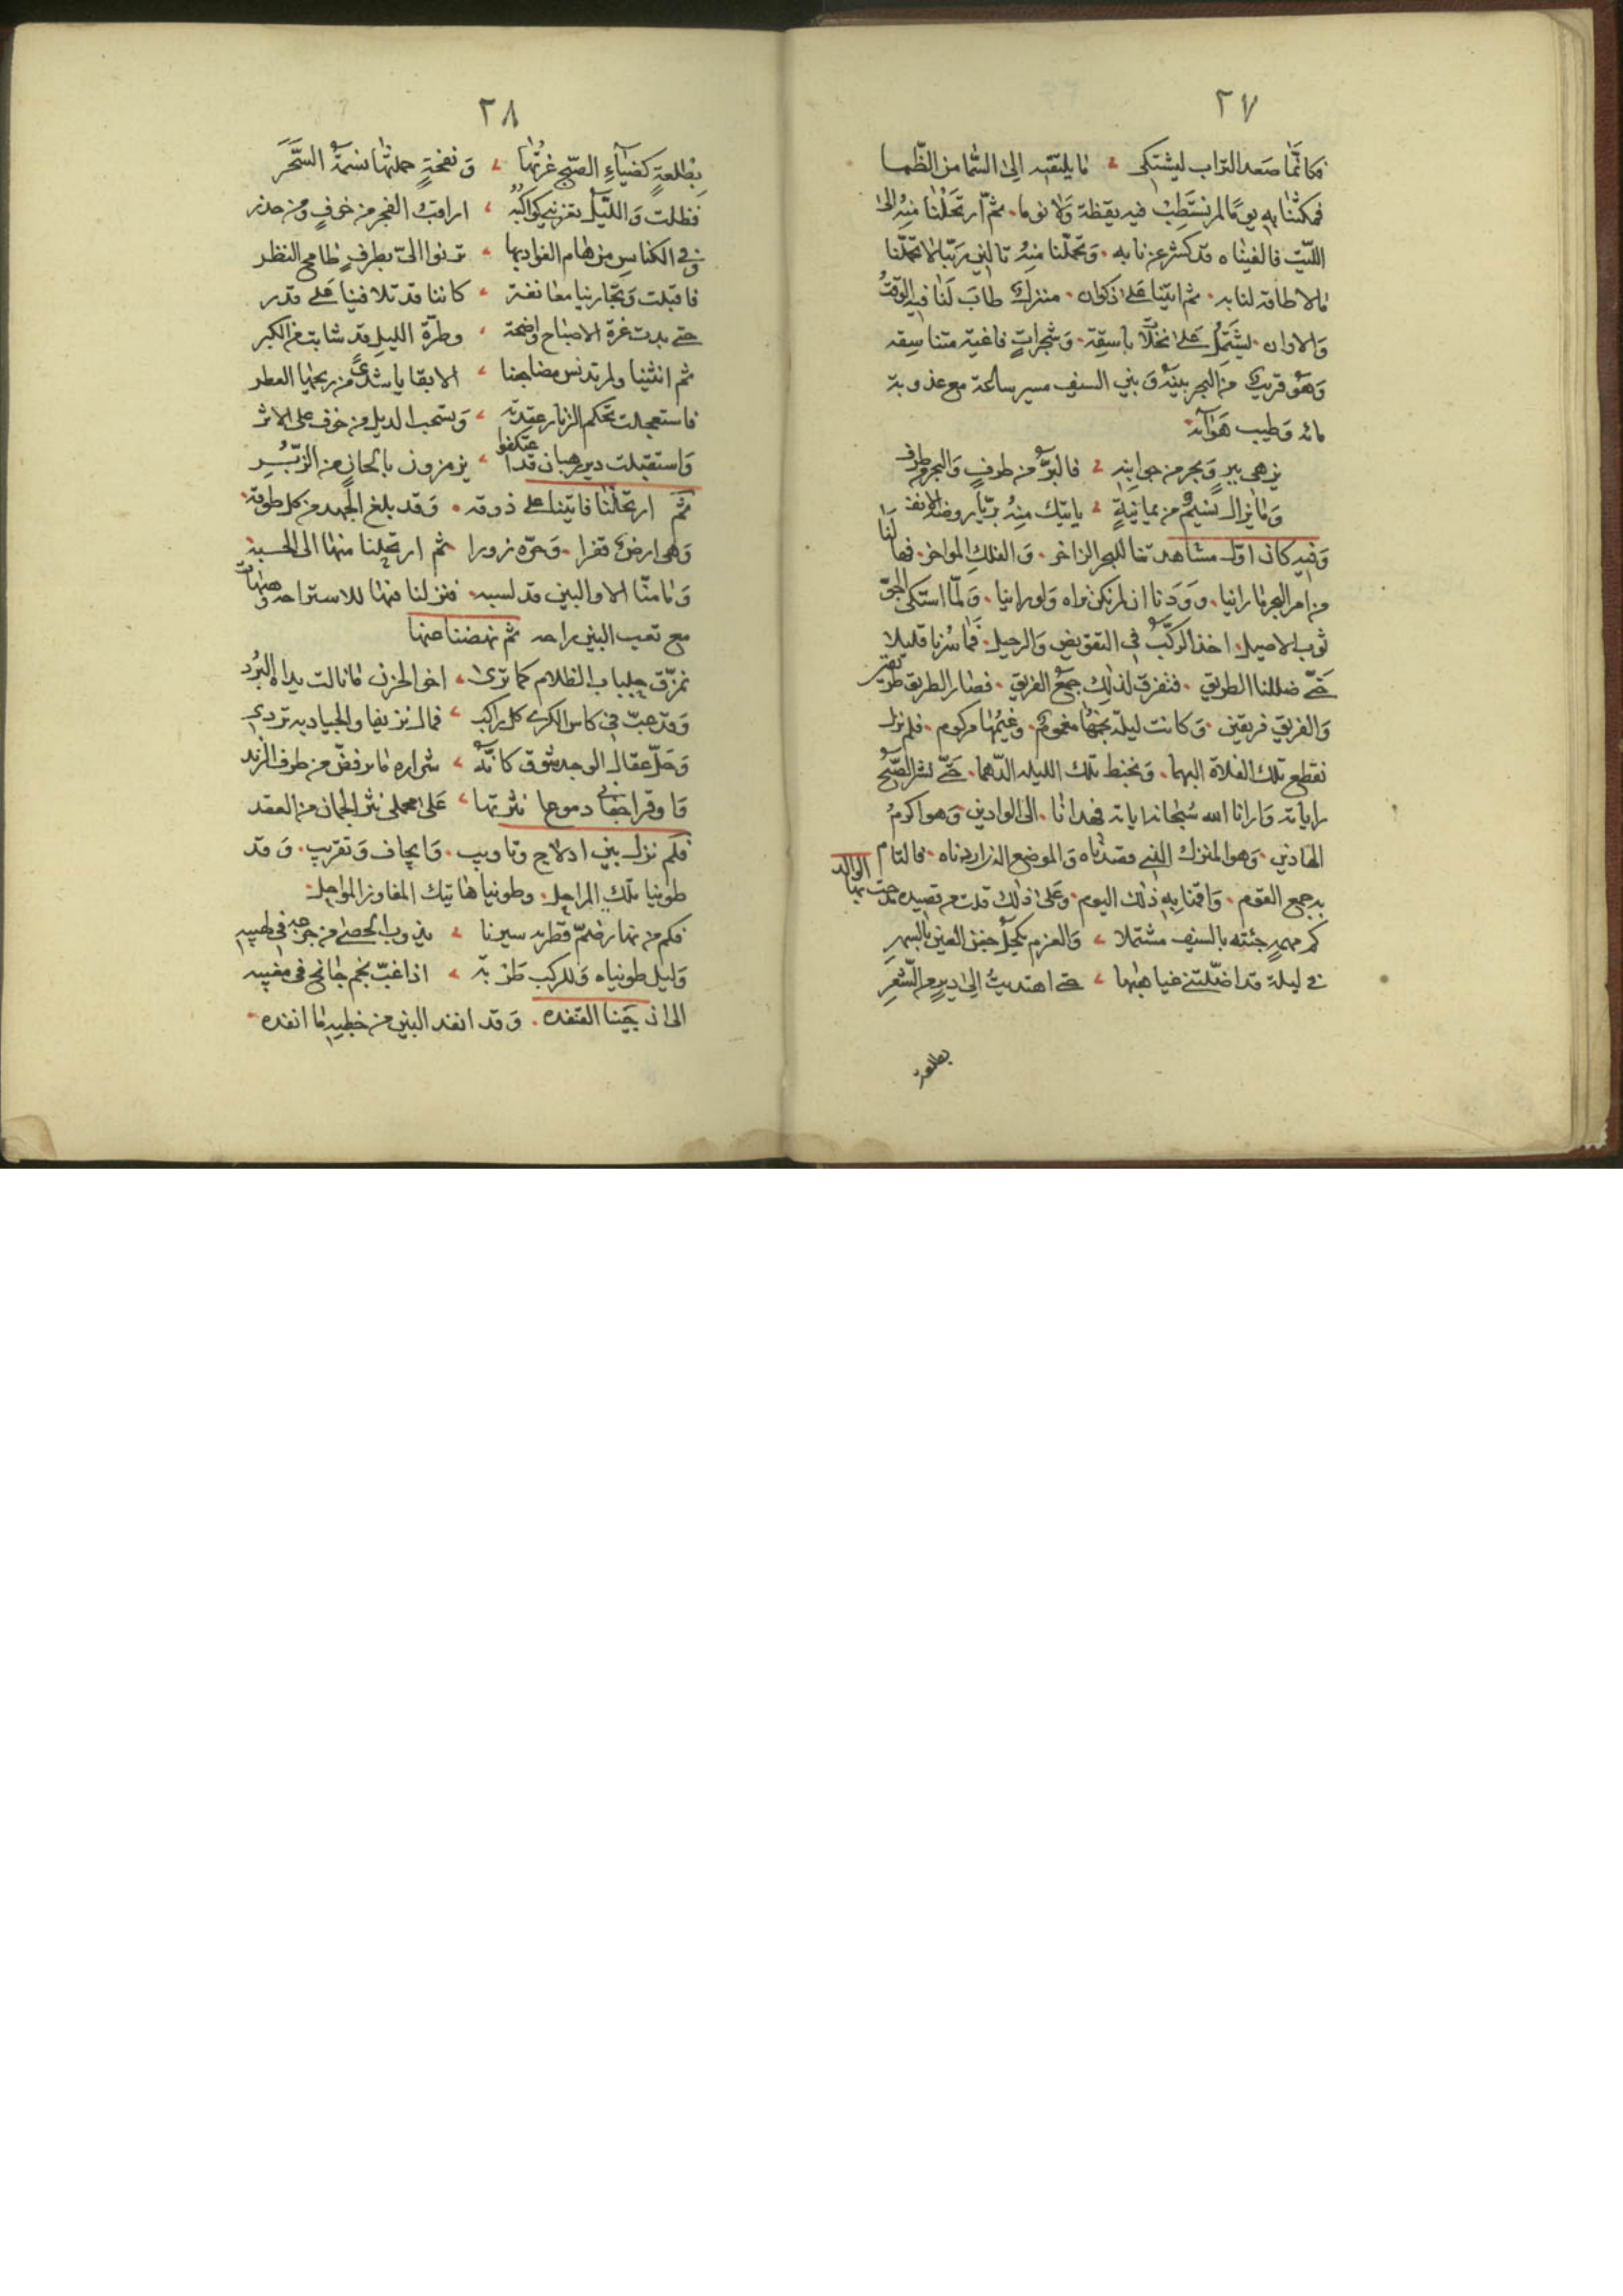 ٢٧
فكانّما صَعد التراب ليشتكى ما يلتقيه الى السّما من الظّما
فمكثنا به يومًا لم نستَطِبْ فيه يقظة وَلا نوما. ثمّ ارتحَلْنا منهُ الى
الليّث فالفيناه قد كشر عن نابه. وَتحمّلنا منهُ تالين رَبّنا لا تحمّلنا
مالا طاقة لنا به. ثم اتينا عَلى ذكوان. منزلٌ طابَ لَنا فيه الوقتُ
وَالاوان. يشتَمِل عَلى نخلات باسِقة. وَشجراتٍ فاغية متناسِقه
وَهوَ قريبٌ من البحر بينَهُ وَ بين السيف مسير ساعة مع عذوبة
مائه وَطيب هَوَآئه
يزهى ببرٍ وَبحرٍ من جوانبِه فالبرُّ من طرفٍ وَالبحر من طرف
وَما يزال نسيمٌ من يمانيةٍ ياتيك منهُ بريّا روضة الانف
وَفيه كان اوّل مشاهدتنا للبحر الزاخر. وَالفلك المواخر. فهالَنا
من امر البحر ما راينا. ووَدَدنا ان لم نكن نراه وَلو راينا. وَلمّا اسْتكى الجوّ
ثوب الاصيل. اخذ الركبُ في التقويض وَالرحيل. فَما سُرنا قليلا
حَتّى ضللنا الطريق. فتفرق لذلِك جمعُ الفريق. فصار الطريق طريقين
وَالفريق فريقين. وَكانت ليلة نجمُها مغمومٌ. وغيمُها مركوم. فلم نزل
نقطع تلك الفلاة البهما. وَنخبط تلك الليله الدّهما. حَتّى نشر الصّبحُ
راياته وَارانا الله سُبحانه اياته فهدانا. الى الوادين وَهو اكرمُ
الهادين. وَهو المنزل الذي قصدناه وَالموضع الذى اردناه. فالتام
به جمع القوم. وَاقمنا بِهِ ذلك اليوم. وعَلى ذلك قلت من قصيده مدحت بها الوالد
كم مهمهٍ جئته بالسيف مشتملا وَالعزم يكحل جفن العين بالسهرِ
في ليلة قد اضلّلتنى غياهبُها حتى اهتديتُ الى ديرٍ من الشّعَرِ
بطلعة
٢٨
بِطَلعةٍ كضيآءِ الصّبح غرتُها وَ نفحةٍ حملتها نسمَةُ السَّحَرَ
فظلت وَالليّل يغزيني كواكبُه اراقبُ الفجر من خوفٍ ومن حذر
وفى الكناسِ من هام الفواد بها ترنوا الىّ بطرفٍ طامح النظر
فاقبَلت وَتجَارينا معانقة كاننا قد تلاقينا عَلى قدر
حتى بدت غرة الاصباح واضحة وطرّة الليل قد شابت من الكبر
ثم انثنينا ولم تدنس مضاجعنا الا بقايا شذىً من ريحها العطر
فاستعجلت تحكم الزنار عقدته وَتسحب الذيل من خوف على الاثر
وَاستقبلت دير رهبان قد اعتكفوا يزمزمون بالحانٍ من الزّبُرِ
ثمّ ارتحلْنا فاتينا على ذوقه. وَقد بلغ الجهد من كل طوقه.
وَهى ارض قفرا. وَحرّه زورا ثم ارتحلنا منها الى الحسبة
وَمامنّا الا والبين قد لسبه. فنزلنا منها للاستراحه وهيهات
مع تعب البين راحه ثم نهضنا عنها
نمزّق جلباب الظلام كما ترى اخى الحزن مانالت يداه من البُرد
وَقد عبّ فى كاس الكرى كل راكبٍ فمال نزيفا والجياد به تردي
وَحَلّ عقال الوجد شوق كانّهُ شراره ما يرفضّ من طرف الزند
وَاوقر اجفانى دموعا نثرتها عَلى محملى نثر الجمان من العقد
فلم نزل بين ادلاج وتاويب. وَايجاف وَتقريب. وَ قد
طوينا تلك المراحل. وطوينا هاتيك المفاوز المواحل.
فكم من نهار ضمّ قطريه سيرنا يذوب الحصى من جوّه فى لهيبه
وَليل طويناه وَللركب طربة اذا غبّ نجم جانح فى مغيبه
الى ان جئنا القنفده. وَقد انفد البين من خطبه ما انفده.